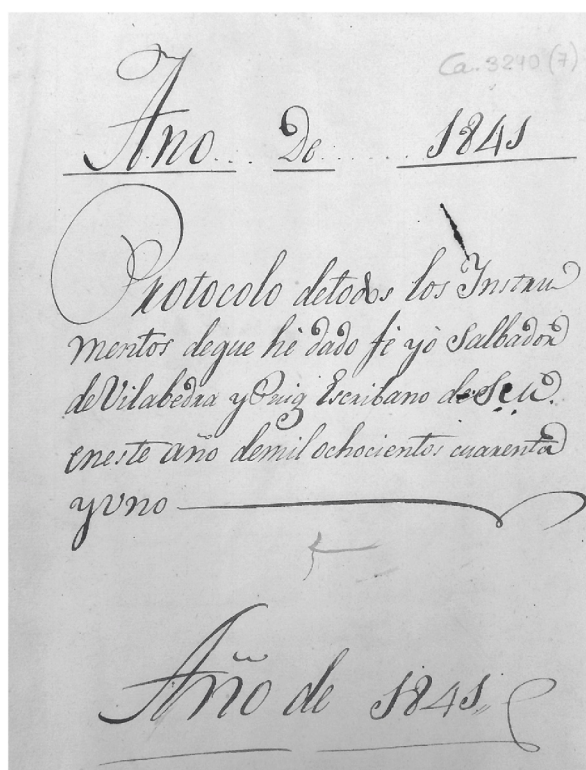 Ca. 3290 (7)
Año... De ...... 1841
Protocolo detodos los Instru
mentos deque hè dado fè yò Salbador
de Vilabedra y Puig Escribano de
eneste año demil ochocientos cuarenta
y uno
Año de 1841